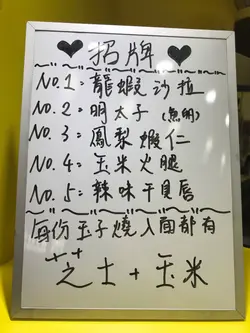 招牌
NO.1：龍蝦沙拉
NO.2：明太子(魚明)
NO.3：鳳梨蝦仁
NO.4：玉米火腿
NO.5：辣味干貝唇
每份玉子燒入面都有
芝士+玉米